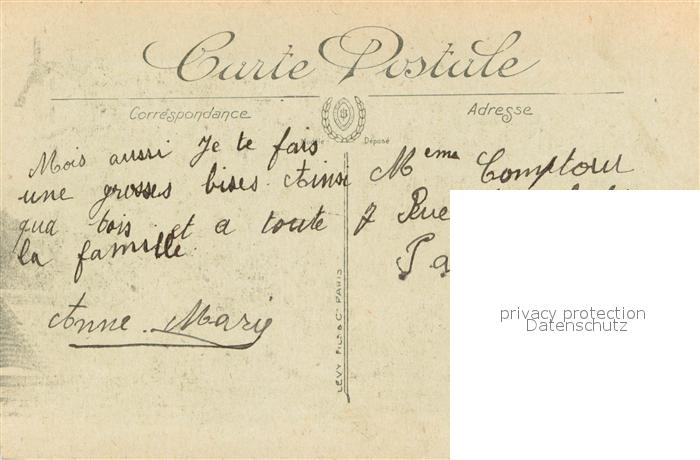 Carte Postale
Correspondance
Adresse
Marque Déposé
Mois aussi Je te fais
une grosses bises Ainsi
qua tois et a toute
la famille
Anne-Marie
Mme Comptour
7 Rue
Pa
LÉVY FILS & Cie PARIS
privacy protection
Datenschutz